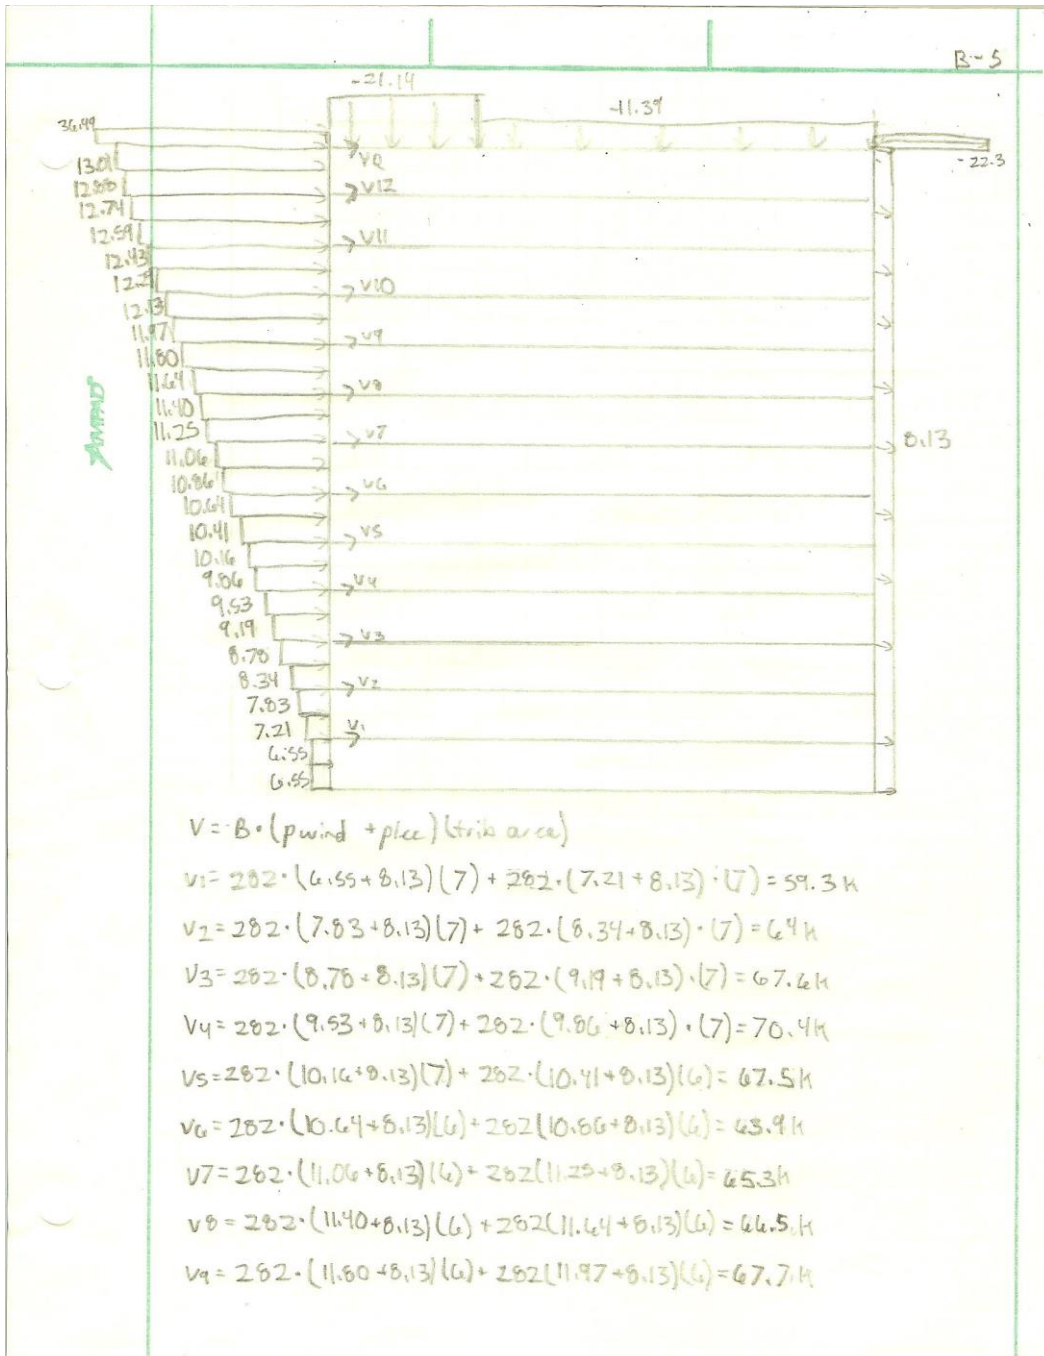 B-5
-21.14
-11.39
36.49
-22.3
13.01
VR
12.88
V12
12.74
12.59
V11
12.43
V10
12.13
11.97
V9
11.80
11.64
V8
11.40
11.25
V7
8.13
11.06
10.86
V6
10.64
10.41
V5
10.16
9.86
V4
9.53
9.19
V3
8.78
8.34
V2
7.83
7.21
V1
6.55
6.55
AMPAD
V = B·(pwind + plee)(trib area)
V1 = 282·(6.55+8.13)(7) + 282·(7.21+8.13)·(7) = 59.3k
V2 = 282·(7.83+8.13)(7) + 282·(8.34+8.13)·(7) = 64k
V3 = 282·(8.78+8.13)(7) + 282·(9.19+8.13)·(7) = 67.6k
V4 = 282·(9.53+8.13)(7) + 282·(9.86+8.13)·(7) = 70.4k
V5 = 282·(10.16+8.13)(7) + 282·(10.41+8.13)(6) = 67.5k
V6 = 282·(10.64+8.13)(6) + 282(10.86+8.13)(6) = 63.9k
V7 = 282·(11.06+8.13)(6) + 282(11.25+8.13)(6) = 65.3k
V8 = 282·(11.40+8.13)(6) + 282(11.64+8.13)(6) = 66.5k
V9 = 282·(11.80+8.13)(6) + 282(11.97+8.13)(6) = 67.7k